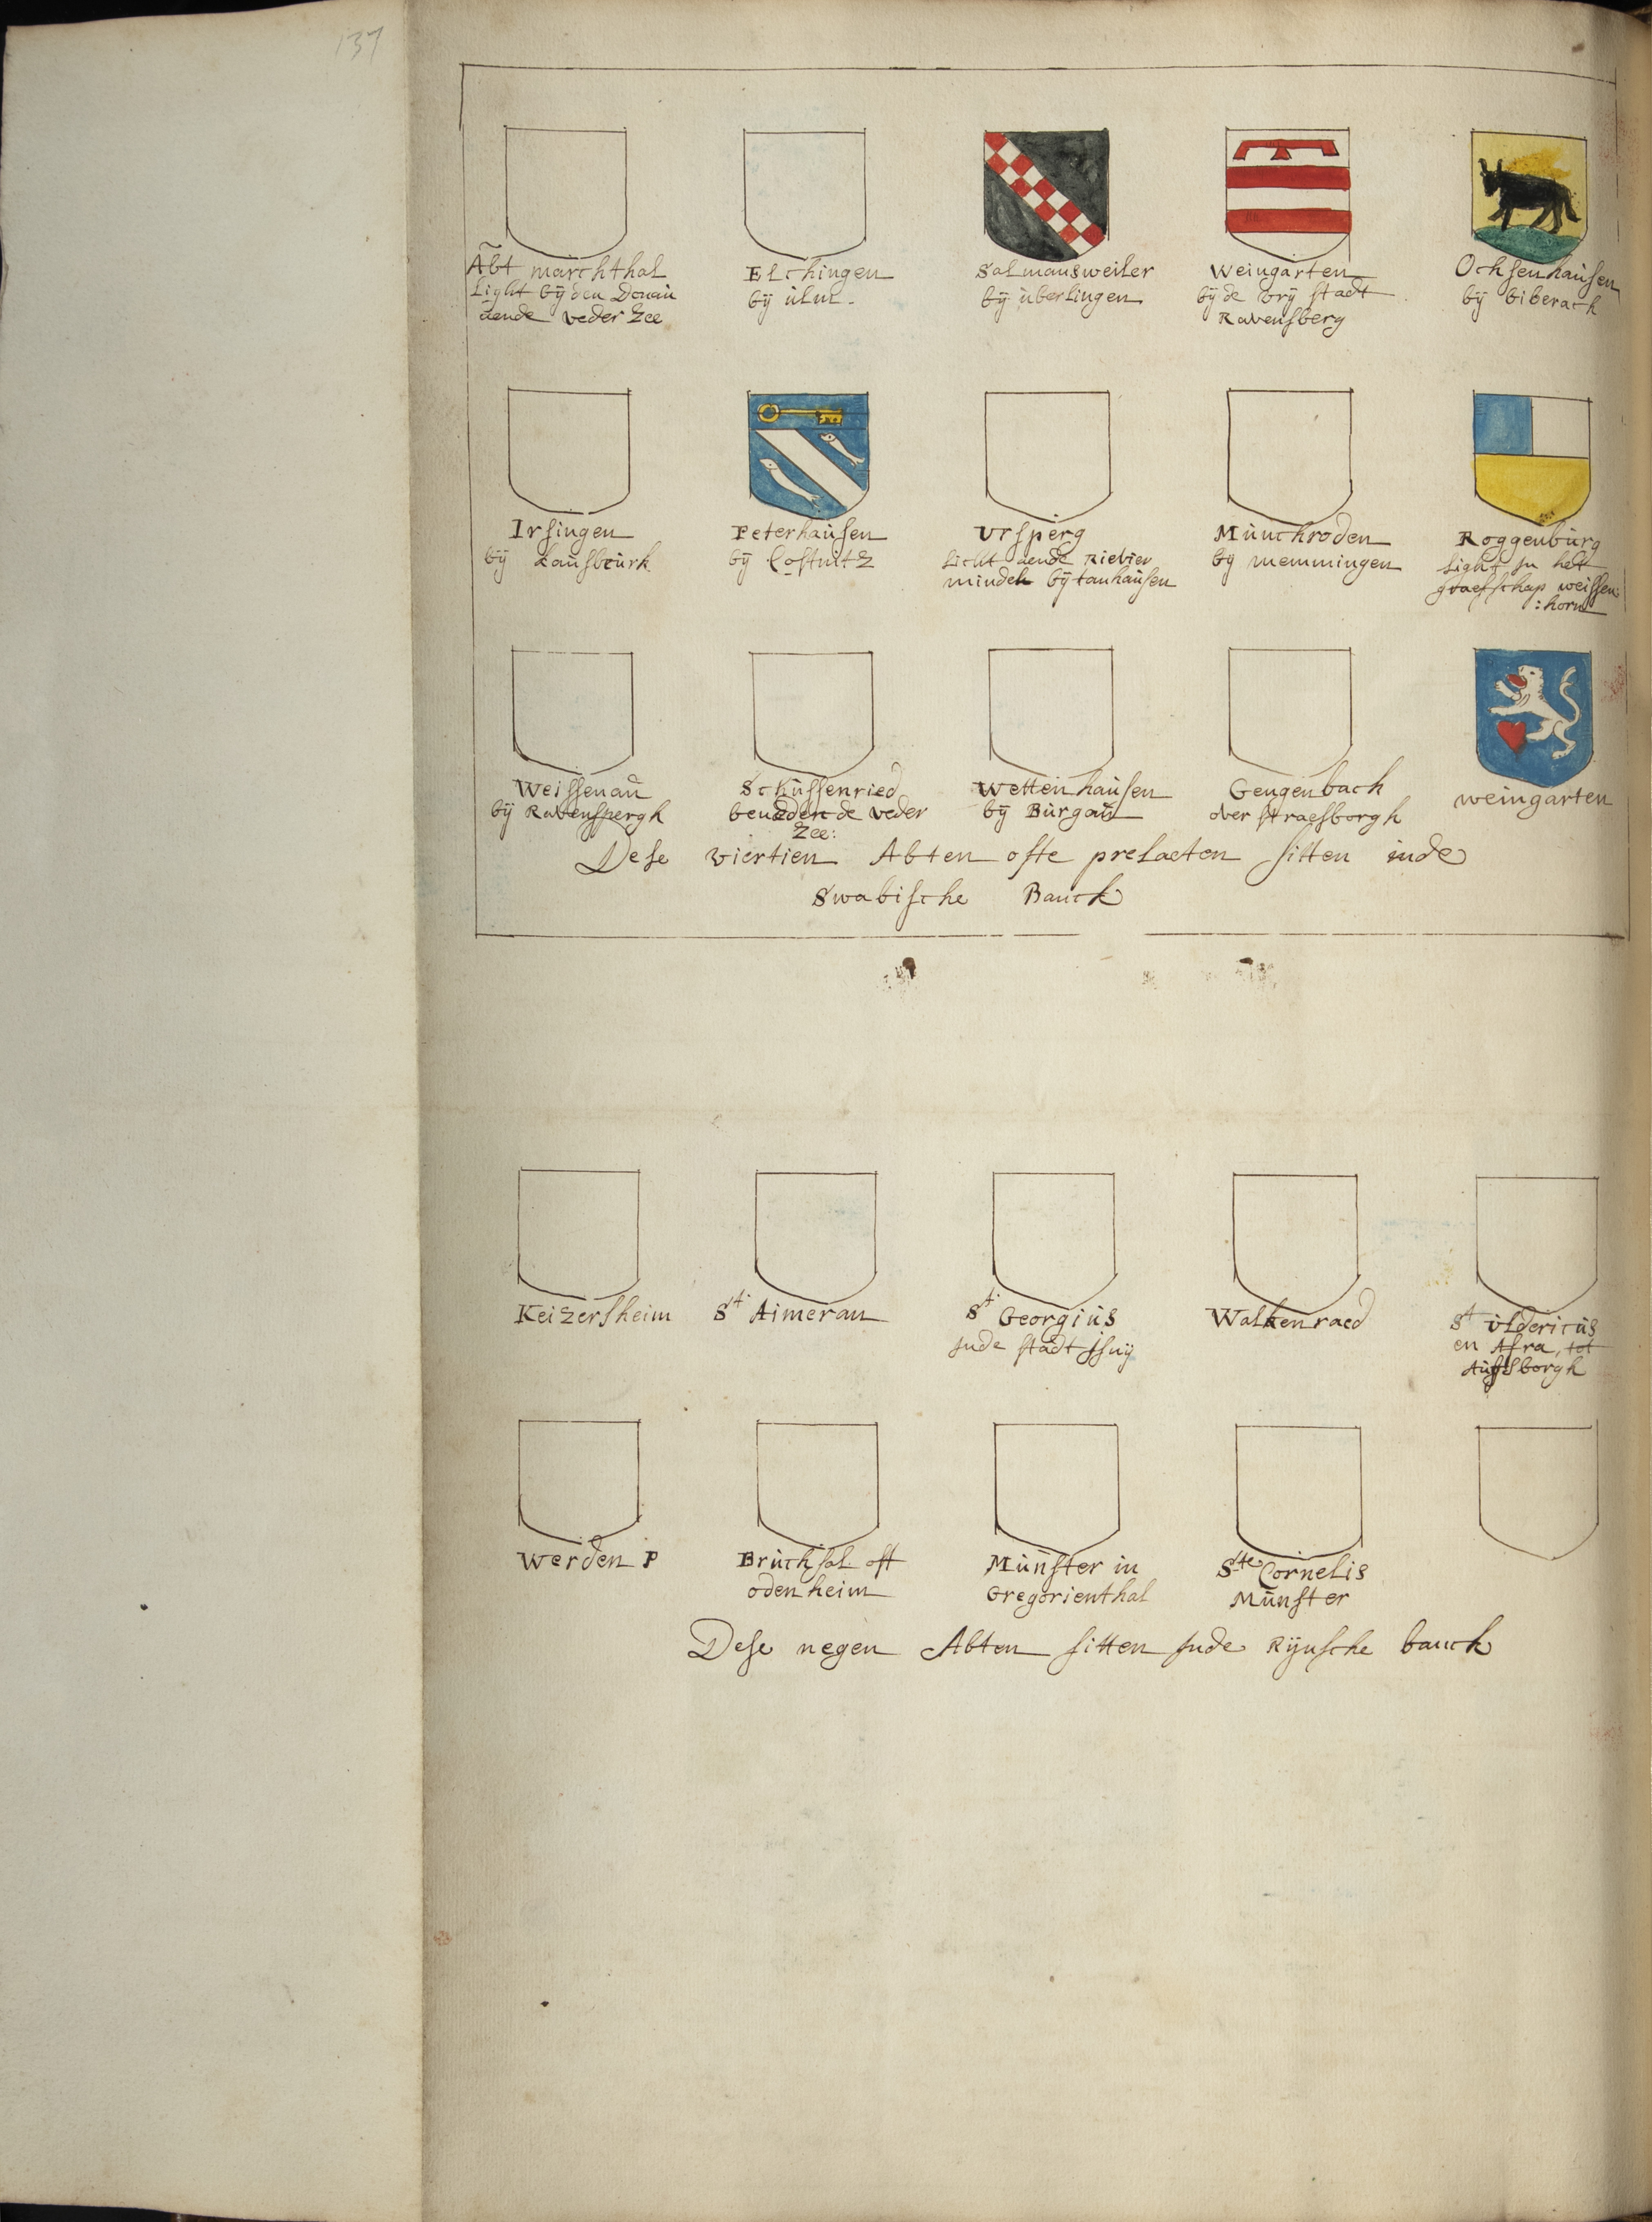 137
Abt marchthal
light bÿ den Donau
aende veder Zee
Elchingen
bÿ ulm.
Salmansweiler
bÿ uberlingen
Weingarten
bÿ de vrÿ stadt
Ravensberg
Ochsenhausen
bÿ biberach
Irsingen
bÿ kausbeurk
Peterhausen
bÿ Costnitz
Ursperg
licht aende Rievier
mindel bÿ tanhausen
Munchroden
bÿ memmingen
Roggenburg
light in het
graefschap weissen:
:horn
Weissenau
bÿ Ravenspergh
Schussenried
beneden de veder
Zee:
Wettenhausen
bÿ Burgau
Gengenbach
over straesborgh
weingarten
Dese viertien Abten ofte prelaeten sitten inde
Swabische Banck
Keizersheim
St Aimeran
St Georgius
inde stadt isnÿ
Walkenraed
St Uldericus
en Afra, tot
Augsborgh
Werden P
Bruchsal oft
odenheim
Münster in
Gregorienthal
Ste Cornelis
Münster
Dese negen Abten sitten inde Rÿnsche banck